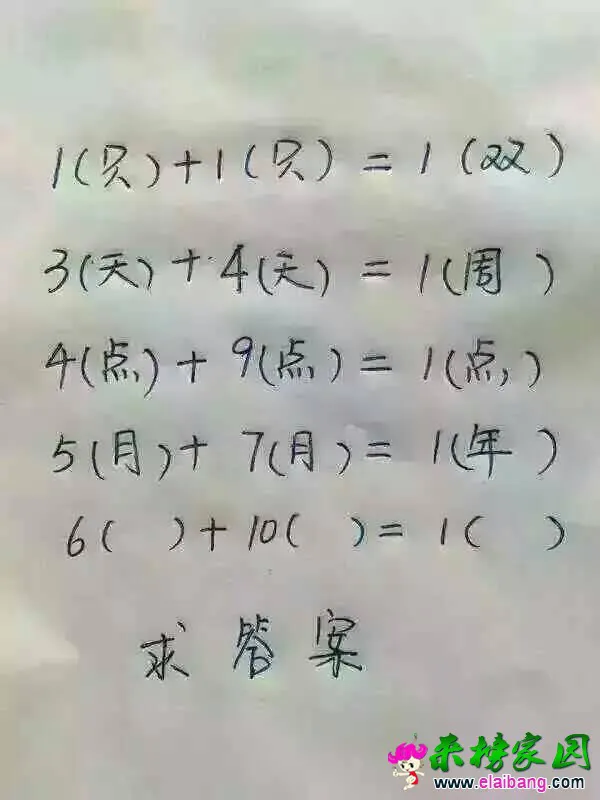 1(只)+1(只)=1(双)
3(天)+4(天)=1(周)
4(点)+9(点)=1(点)
5(月)+7(月)=1(年)
6( )+10( )=1( )
求答案
来榜家园
www.elaibang.com